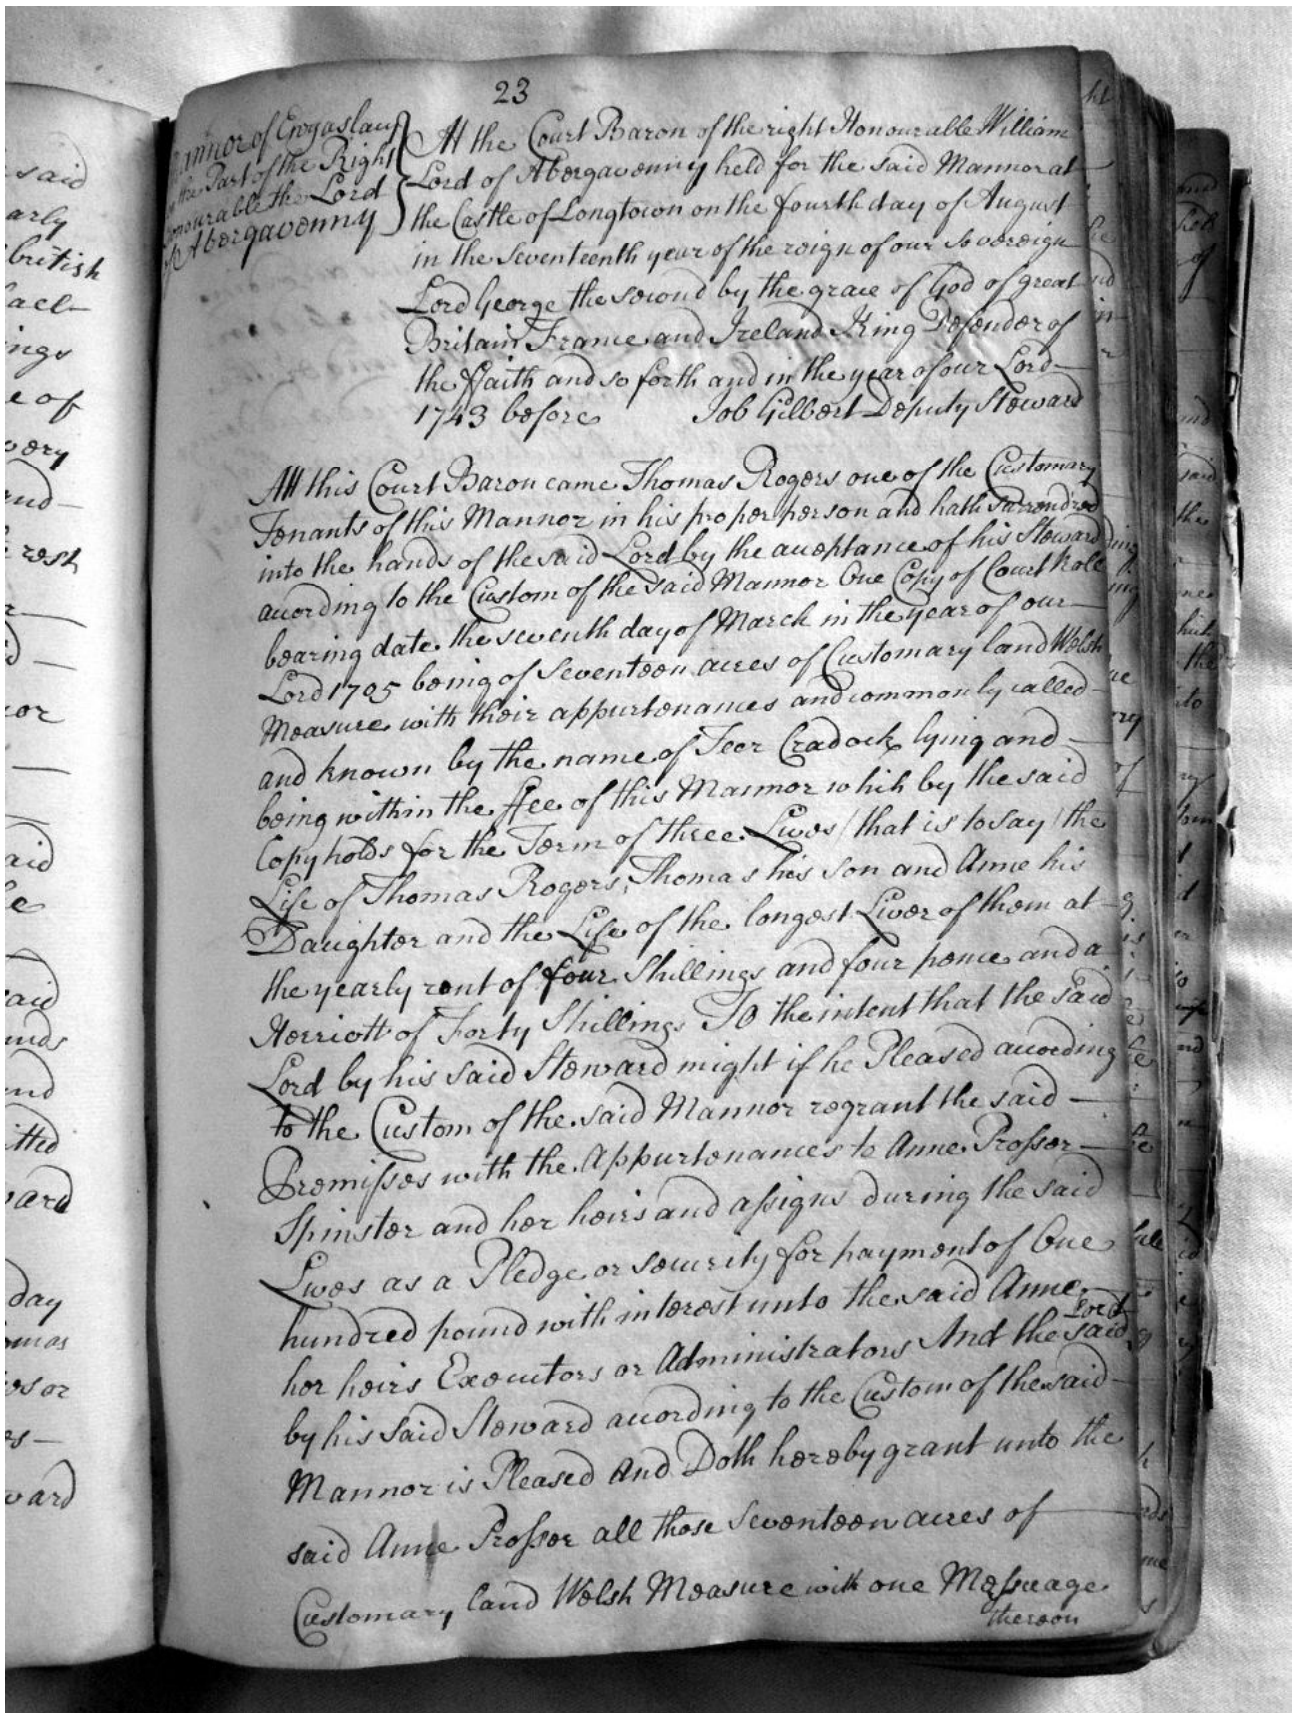 23
Mannor of Ewyaslacy
on the Part of the Right
Honourable the Lord
of Abergavenny
At the Court Baron of the right Honourable William
Lord of Abergavenny held for the said Mannor at
the Castle of Longtown on the fourth day of August
in the seventeenth year of the reign of our Sovereign
Lord George the second by the grace of God of great
Britain France and Ireland King Defender of
the ffaith and so forth and in the year of our Lord
1743 before Job Gilbert Deputy Steward
At this Court Baron came Thomas Rogers one of the Customary
Tenants of this Mannor in his proper person and hath surrendred
into the hands of the said Lord by the acceptance of his Steward
according to the Custom of the said Mannor One Copy of Court Roll
bearing date the seventh day of March in the year of our
Lord 1705 being of seventeen acres of Customary land Welsh
Measure with their appurtenances and commonly called
and known by the name of Teer Cradock lying and
being within the ffee of this Mannor whih by the said
Copy holds for the Term of three Lives (that is to say) the
Life of Thomas Rogers, Thomas his son and Anne his
Daughter and the Life of the longest Liver of them at
the yearly rent of four Shillings and four pence and a
Herriott of Forty Shillings To the intent that the said
Lord by his said Steward might if he Pleased according
to the Custom of the said Mannor regrant the said
Premisses with the Appurtenances to Anne Prosser
Spinster and her heirs and assigns during the said
Lives as a Pledge or security for payment of One
hundred pound with interest unto the said Anne
her heirs Executors or Administrators And the said Lord
by his said Steward according to the Custom of the said
Mannor is Pleased And Doth hereby grant unto the
said Anne Prosser all those seventeen acres of
Customary land Welsh Measure with one Messuage
thereon